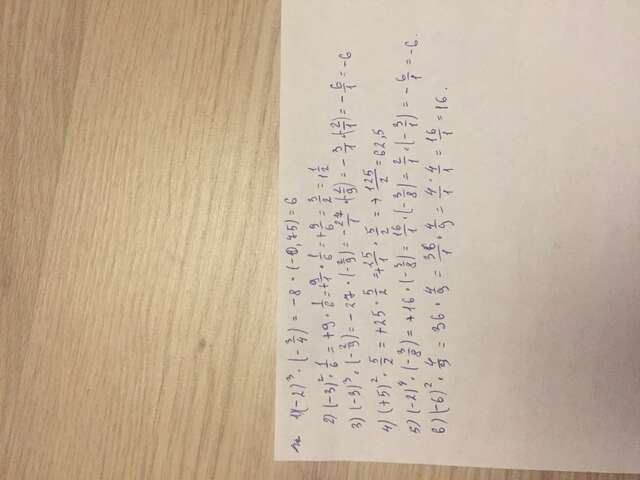 1) (-2)³ · (-3/4) = -8 · (-0,75) = 6
2) (-3)² · 1/6 = +9 · 1/6 = +9/1 · 1/6 = +9/6 = 3/2 = 1 1/2
3) (-3)³ · (-2/9) = -27 · (-2/9) = -27/1 · (2/9) = -3/1 · (2/1) = -6/1 = -6
4) (+5)² · 5/2 = +25 · 5/2 = +25/1 · 5/2 = +125/2 = 62,5
5) (-2)⁴ · (-3/8) = +16 · (-3/8) = 16/1 · (-3/8) = 2/1 · (-3/1) = -6/1 = -6.
6) (-6)² · 4/9 = 36 · 4/9 = 36/1 · 4/9 = 4/1 · 4/1 = 16/1 = 16.